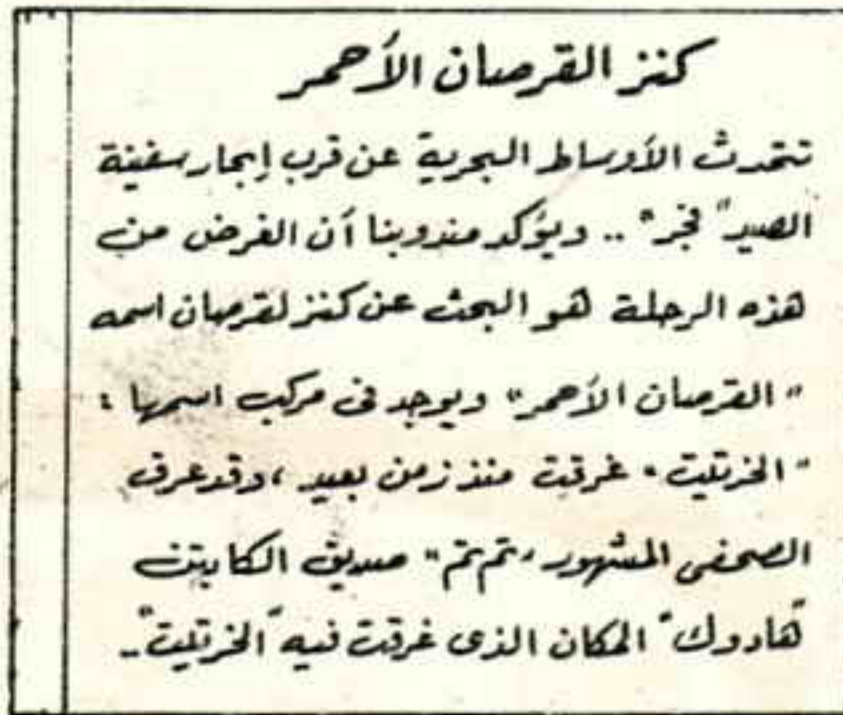 كنز القرصان الأحمر
تتحدث الأوساط البحرية عن قرب إبحار سفينة
الصيد "فجر" .. ويؤكد مندوبنا أن الغرض من
هذه الرحلة هو البحث عن كنز لقرصان اسمه
"القرصان الأحمر" ويوجد فى مركب اسمها :
"الخرتيت" غرقت منذ زمن بعيد ، وقد عرف
الصحفى المشهور "تم تم" صديق الكابتن
"هادوك" المكان الذى غرقت فيه "الخرتيت" ..